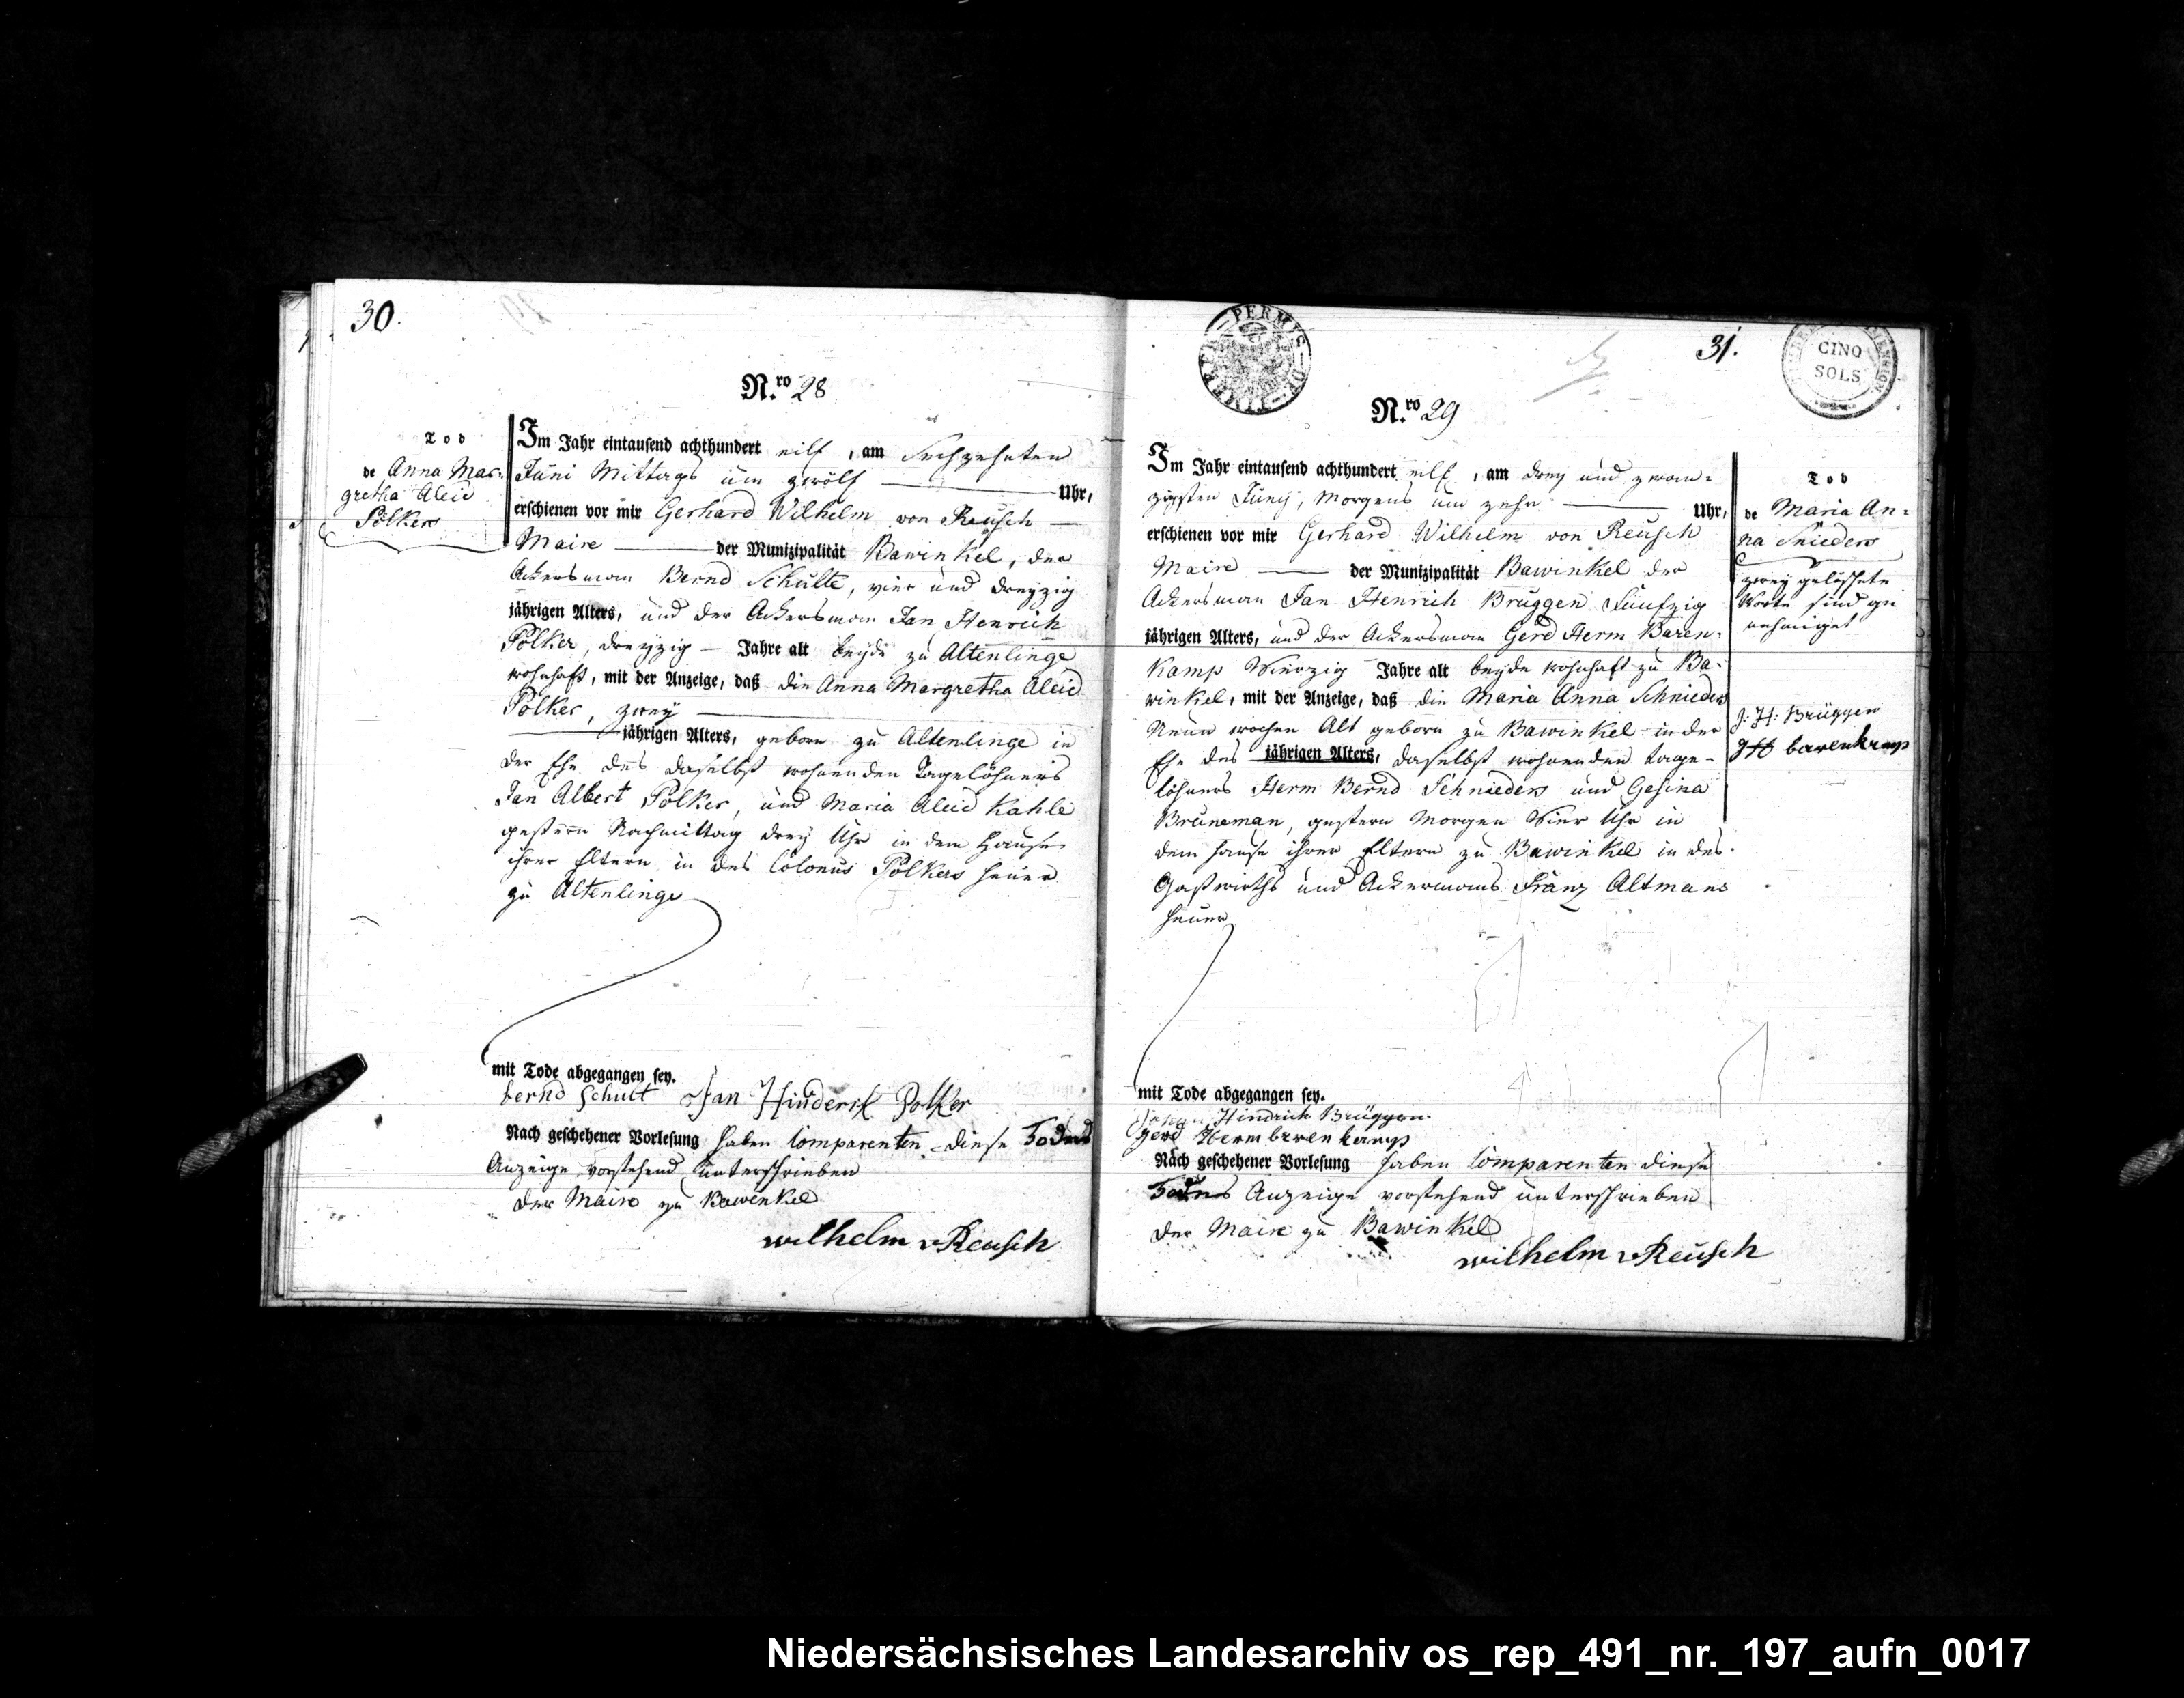 30.
N.ro 28
Tod
de Anna Mar-
gretha Aleid
Pölkers
Im Jahr eintausend achthundert eilf, am Sechzehnten
Juni Mittags um zwölf Uhr,
erschienen vor mir Gerhard Wilhelm von Reusch
Maire der Munizipalität Bawinkel, der
Ackersman Bernd Schulte, vier und dreyzig
jährigen Alters, und der Ackersman Jan Henrich
Pölker, dreyzig Jahre alt beyde zu Altenlinge
wohnhaft, mit der Anzeige, daß die Anna Margretha Aleid
Pölker, zwey
jährigen Alters, geboren zu Altenlinge in
der Ehe des daselbst wohnenden Tagelöhners
Jan Albert Pölker, und Maria Aleid Kahle
gestern Nachmittag drey Uhr in dem Hause
ihrer Eltern in des Colonus Pölkers Heuer
zu Altenlinge
mit Tode abgegangen sey.
bernd Schult Jan Hinderik Polker
Nach geschehener Vorlesung haben Comparenten diese Todes
Anzeige vorstehend unterschrieben
der Maire zu Bawinkel
wilhelm v Reusch
31.
PERM
CINQ
SOLS
N.ro 29
Im Jahr eintausend achthundert eilf, am drey und zwan-
zigsten Juny, Morgens um zehn Uhr,
erschienen vor mir Gerhard Wilhelm von Reusch
Maire der Munizipalität Bawinkel der
Ackersman Jan Henrich Brüggen Fünfzig
jährigen Alters, und der Ackersman Gerd Herm Baren-
kamp Vierzig Jahre alt beyde wohnhaft zu Ba-
winkel, mit der Anzeige, daß die Maria Anna Schnieders
Neun wochen Alt geboren zu Bawinkel in der
Ehe des jährigen Alters, daselbst wohnenden tage-
löhners Herm Bernd Schnieders und Gesina
Brüneman, gestern Morgen Vier Uhr in
dem Hause ihrer Eltern zu Bawinkel in des
Gastwirths und Ackermans Franz Altmans
Heuer
Tod
de Maria An-
na Snieders
zwey gelöschte
Worte sind ge
nehmiget
J: H: Brüggen
GH barenkamp
mit Tode abgegangen sey.
Hindrich Brüggen
Gerd Herm barenkamp
Nach geschehener Vorlesung haben Comparenten diese
Todes Anzeige vorstehend unterschrieben
der Maire zu Bawinkel
wilhelm v Reusch
Niedersächsisches Landesarchiv os_rep_491_nr._197_aufn_0017